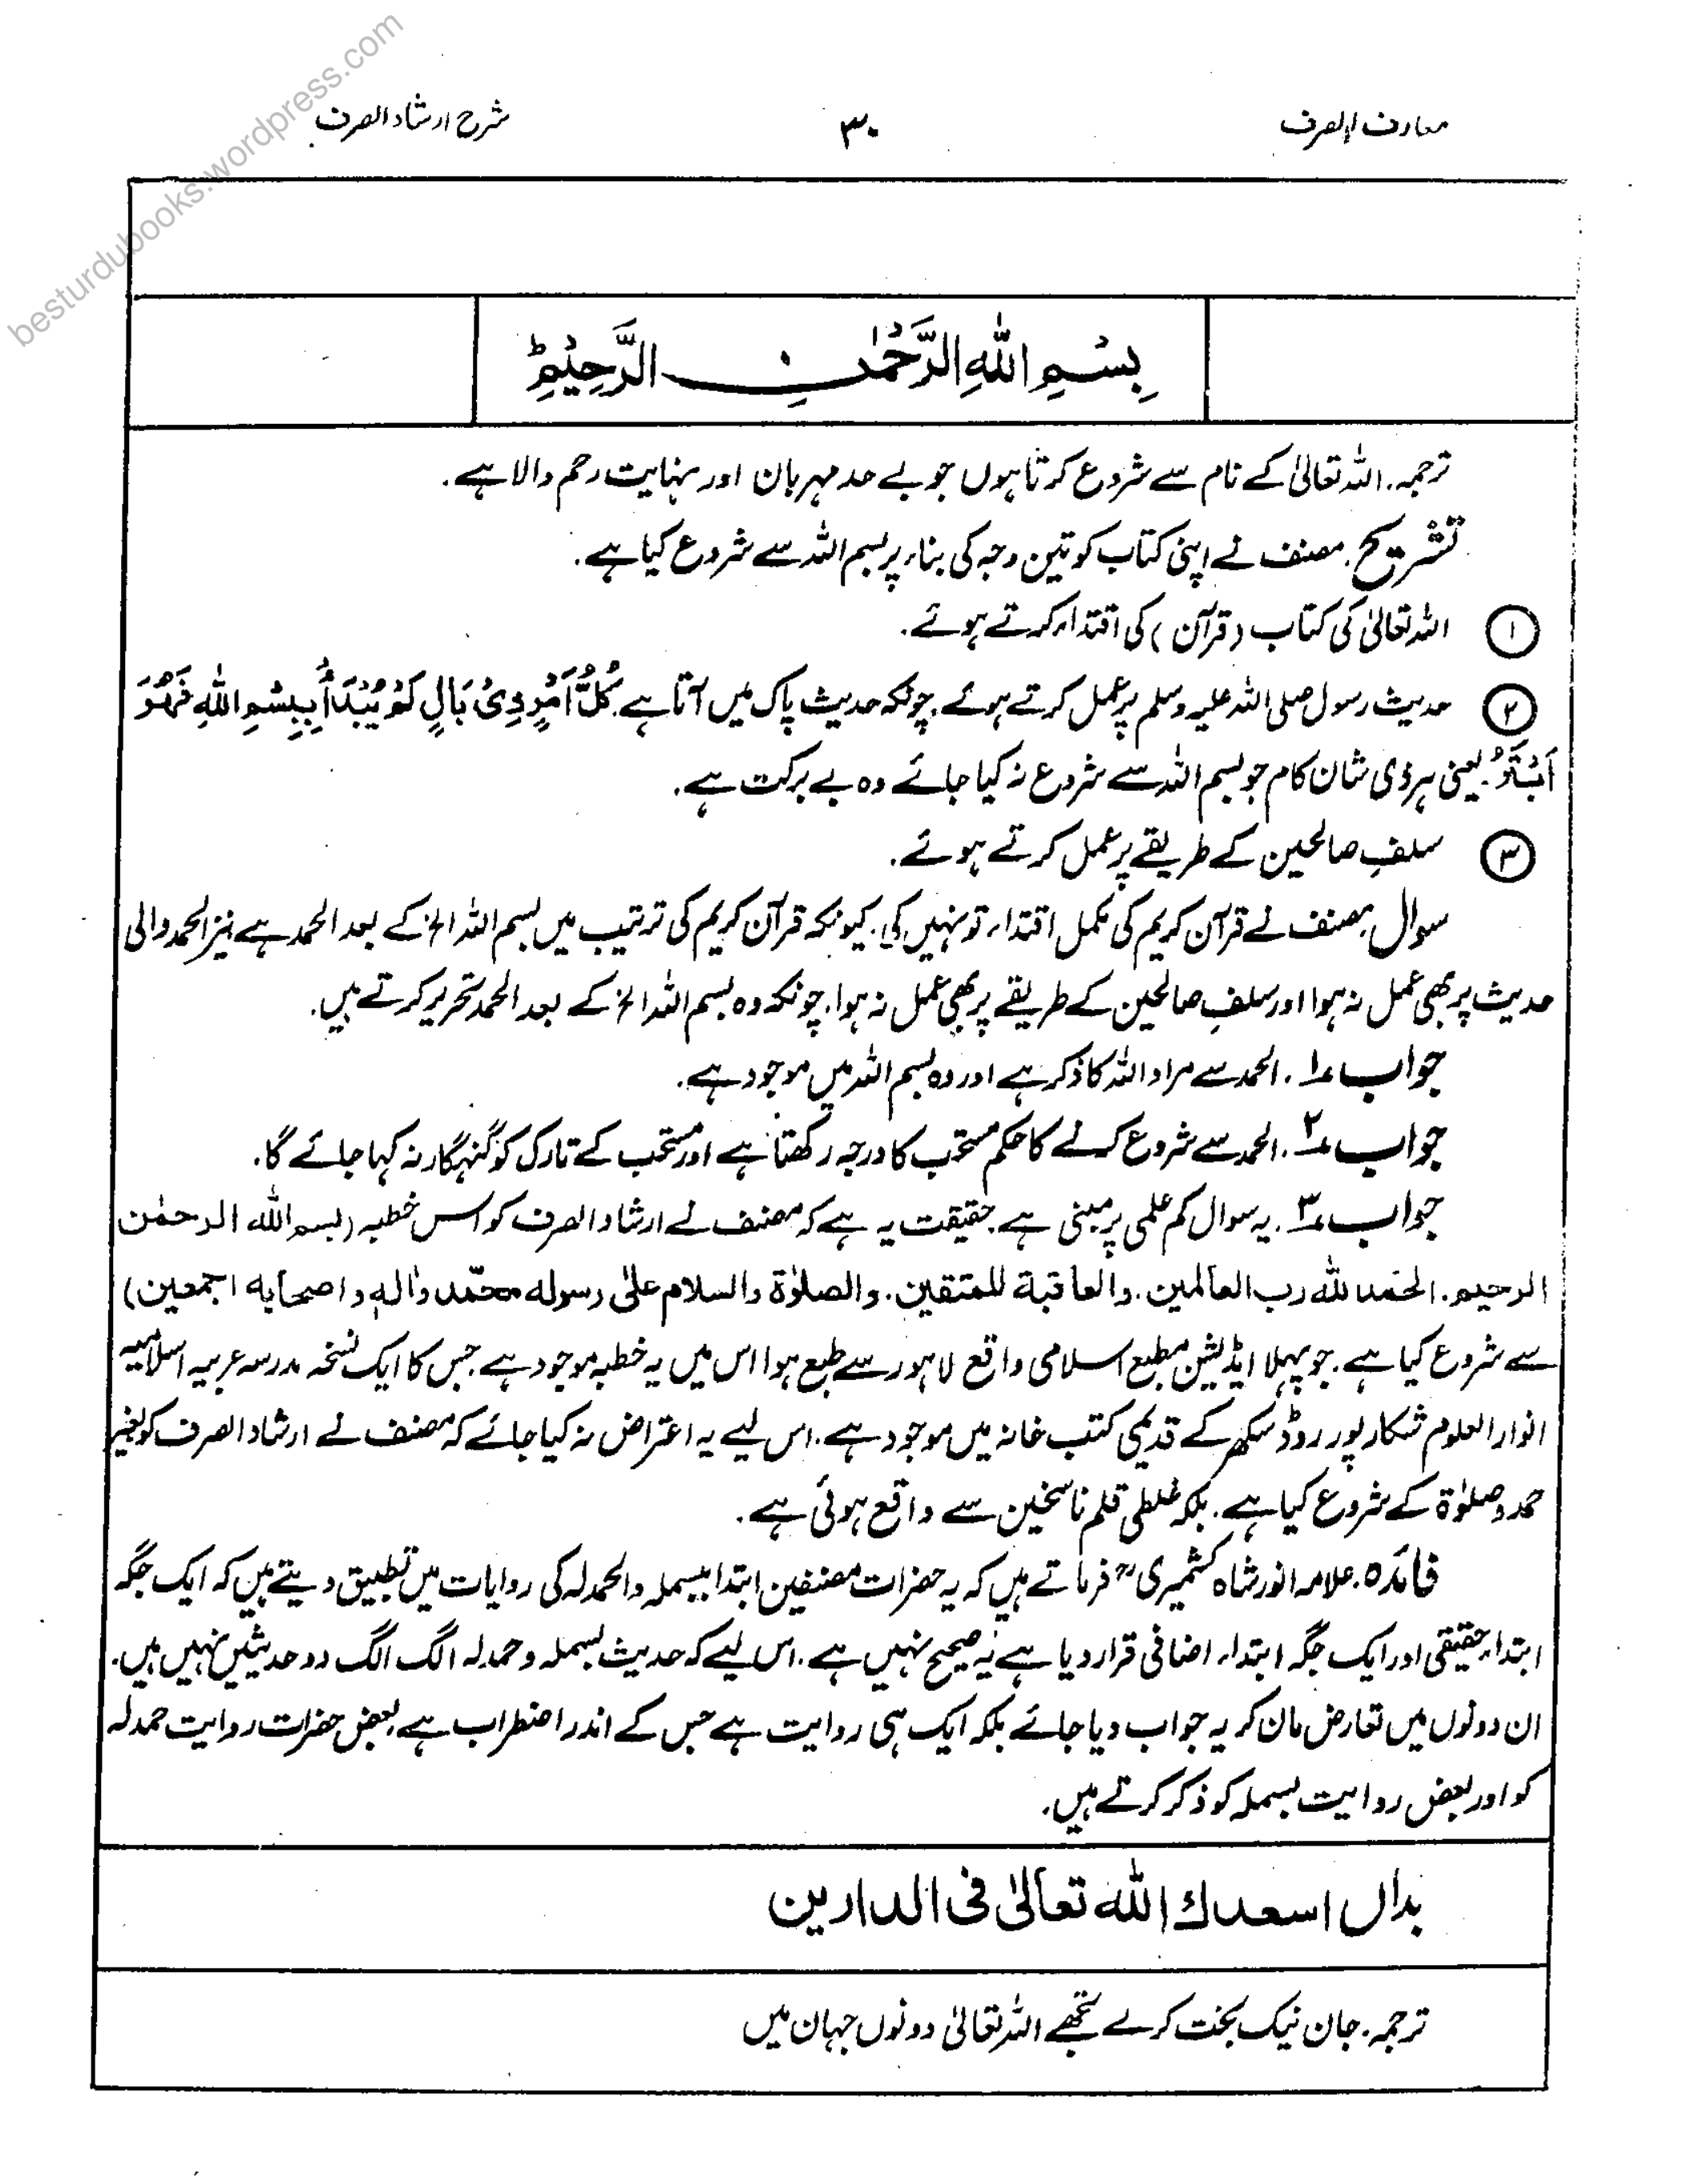 besturdubooks.wordpress.com
معارف الصرف ۳۰ شرح ارشاد الصرف
بِسْمِ اللهِ الرَّحْمٰنِ الرَّحِيْمِ ط
ترجمہ. اللہ تعالیٰ کے نام سے شروع کرتا ہوں جو بے حد مہربان اور نہایت رحم والا ہے.
تشریح. مصنف نے اپنی کتاب کو تین وجہ کی بناء پر بسم اللہ سے شروع کیا ہے.
① اللہ تعالیٰ کی کتاب (قرآن) کی اقتداء کرتے ہوئے.
② حدیث رسول صلی اللہ علیہ وسلم پر عمل کرتے ہوئے. چونکہ حدیث پاک میں آتا ہے. كُلُّ اَمْرٍ ذِىْ بَالٍ لَمْ يُبْدَأْ بِبِسْمِ اللهِ فَهُوَ
اَبْتَرُ. یعنی ہر ذی شان کام جو بسم اللہ سے شروع نہ کیا جائے وہ بے برکت ہے.
③ سلفِ صالحین کے طریقے پر عمل کرتے ہوئے.
سوال. مصنف نے قرآن کریم کی مکمل اقتداء تو نہیں کی. کیونکہ قرآن کریم کی ترتیب میں بسم اللہ الخ کے بعد الحمد ہے نیز الحمد والی
حدیث پر بھی عمل نہ ہوا اور سلفِ صالحین کے طریقے پر بھی عمل نہ ہوا. چونکہ وہ بسم اللہ الخ کے بعد الحمد تحریر کرتے ہیں.
جواب ۱. الحمد سے مراد اللہ کا ذکر ہے اور وہ بسم اللہ میں موجود ہے.
جواب ۲. الحمد سے شروع کرنے کا حکم مستحب کا درجہ رکھتا ہے اور مستحب کے تارک کو گنہگار نہ کہا جائے گا.
جواب ۳. یہ سوال کم علمی پر مبنی ہے. حقیقت یہ ہے کہ مصنف نے ارشاد الصرف کو اس خطبہ (بسم الله الرحمٰن
الرحيم. الحمد لله رب العالمين. والعاقبة للمتقين. والصلوٰة والسلام على رسوله محمّد واٰلهٖ واصحابه اجمعين)
سے شروع کیا ہے. جو پہلا ایڈیشن مطبع اسلامی واقع لاہور سے طبع ہوا اس میں یہ خطبہ موجود ہے جس کا ایک نسخہ مدرسہ عربیہ اسلامیہ
انوار العلوم شکارپور روڈ سکھر کے قدیمی کتب خانہ میں موجود ہے. اس لیے یہ اعتراض نہ کیا جائے کہ مصنف نے ارشاد الصرف کو بغیر
حمد و صلوٰۃ کے شروع کیا ہے. بلکہ غلطی قلم ناسخین سے واقع ہوئی ہے.
فائدہ. علامہ انور شاہ کشمیریؒ فرماتے ہیں کہ یہ حضرات مصنفین ابتدا ببسملہ والحمدلہ کی روایات میں تطبیق دیتے ہیں کہ ایک جگہ
ابتداء حقیقی اور ایک جگہ ابتداء اضافی قرار دیا ہے یہ صحیح نہیں ہے. اس لیے کہ حدیث بسملہ و حمدلہ الگ الگ دو حدیثیں نہیں ہیں.
ان دونوں میں تعارض مان کر یہ جواب دیا جائے بلکہ ایک ہی روایت ہے جس کے اندر اضطراب ہے بعض حضرات روایت حمدلہ
کو اور بعض روایت بسملہ کو ذکر کرتے ہیں.
بداں اسعدك الله تعالىٰ فى الدارين
ترجمہ. جان نیک بخت کرے تجھے اللہ تعالیٰ دونوں جہان میں